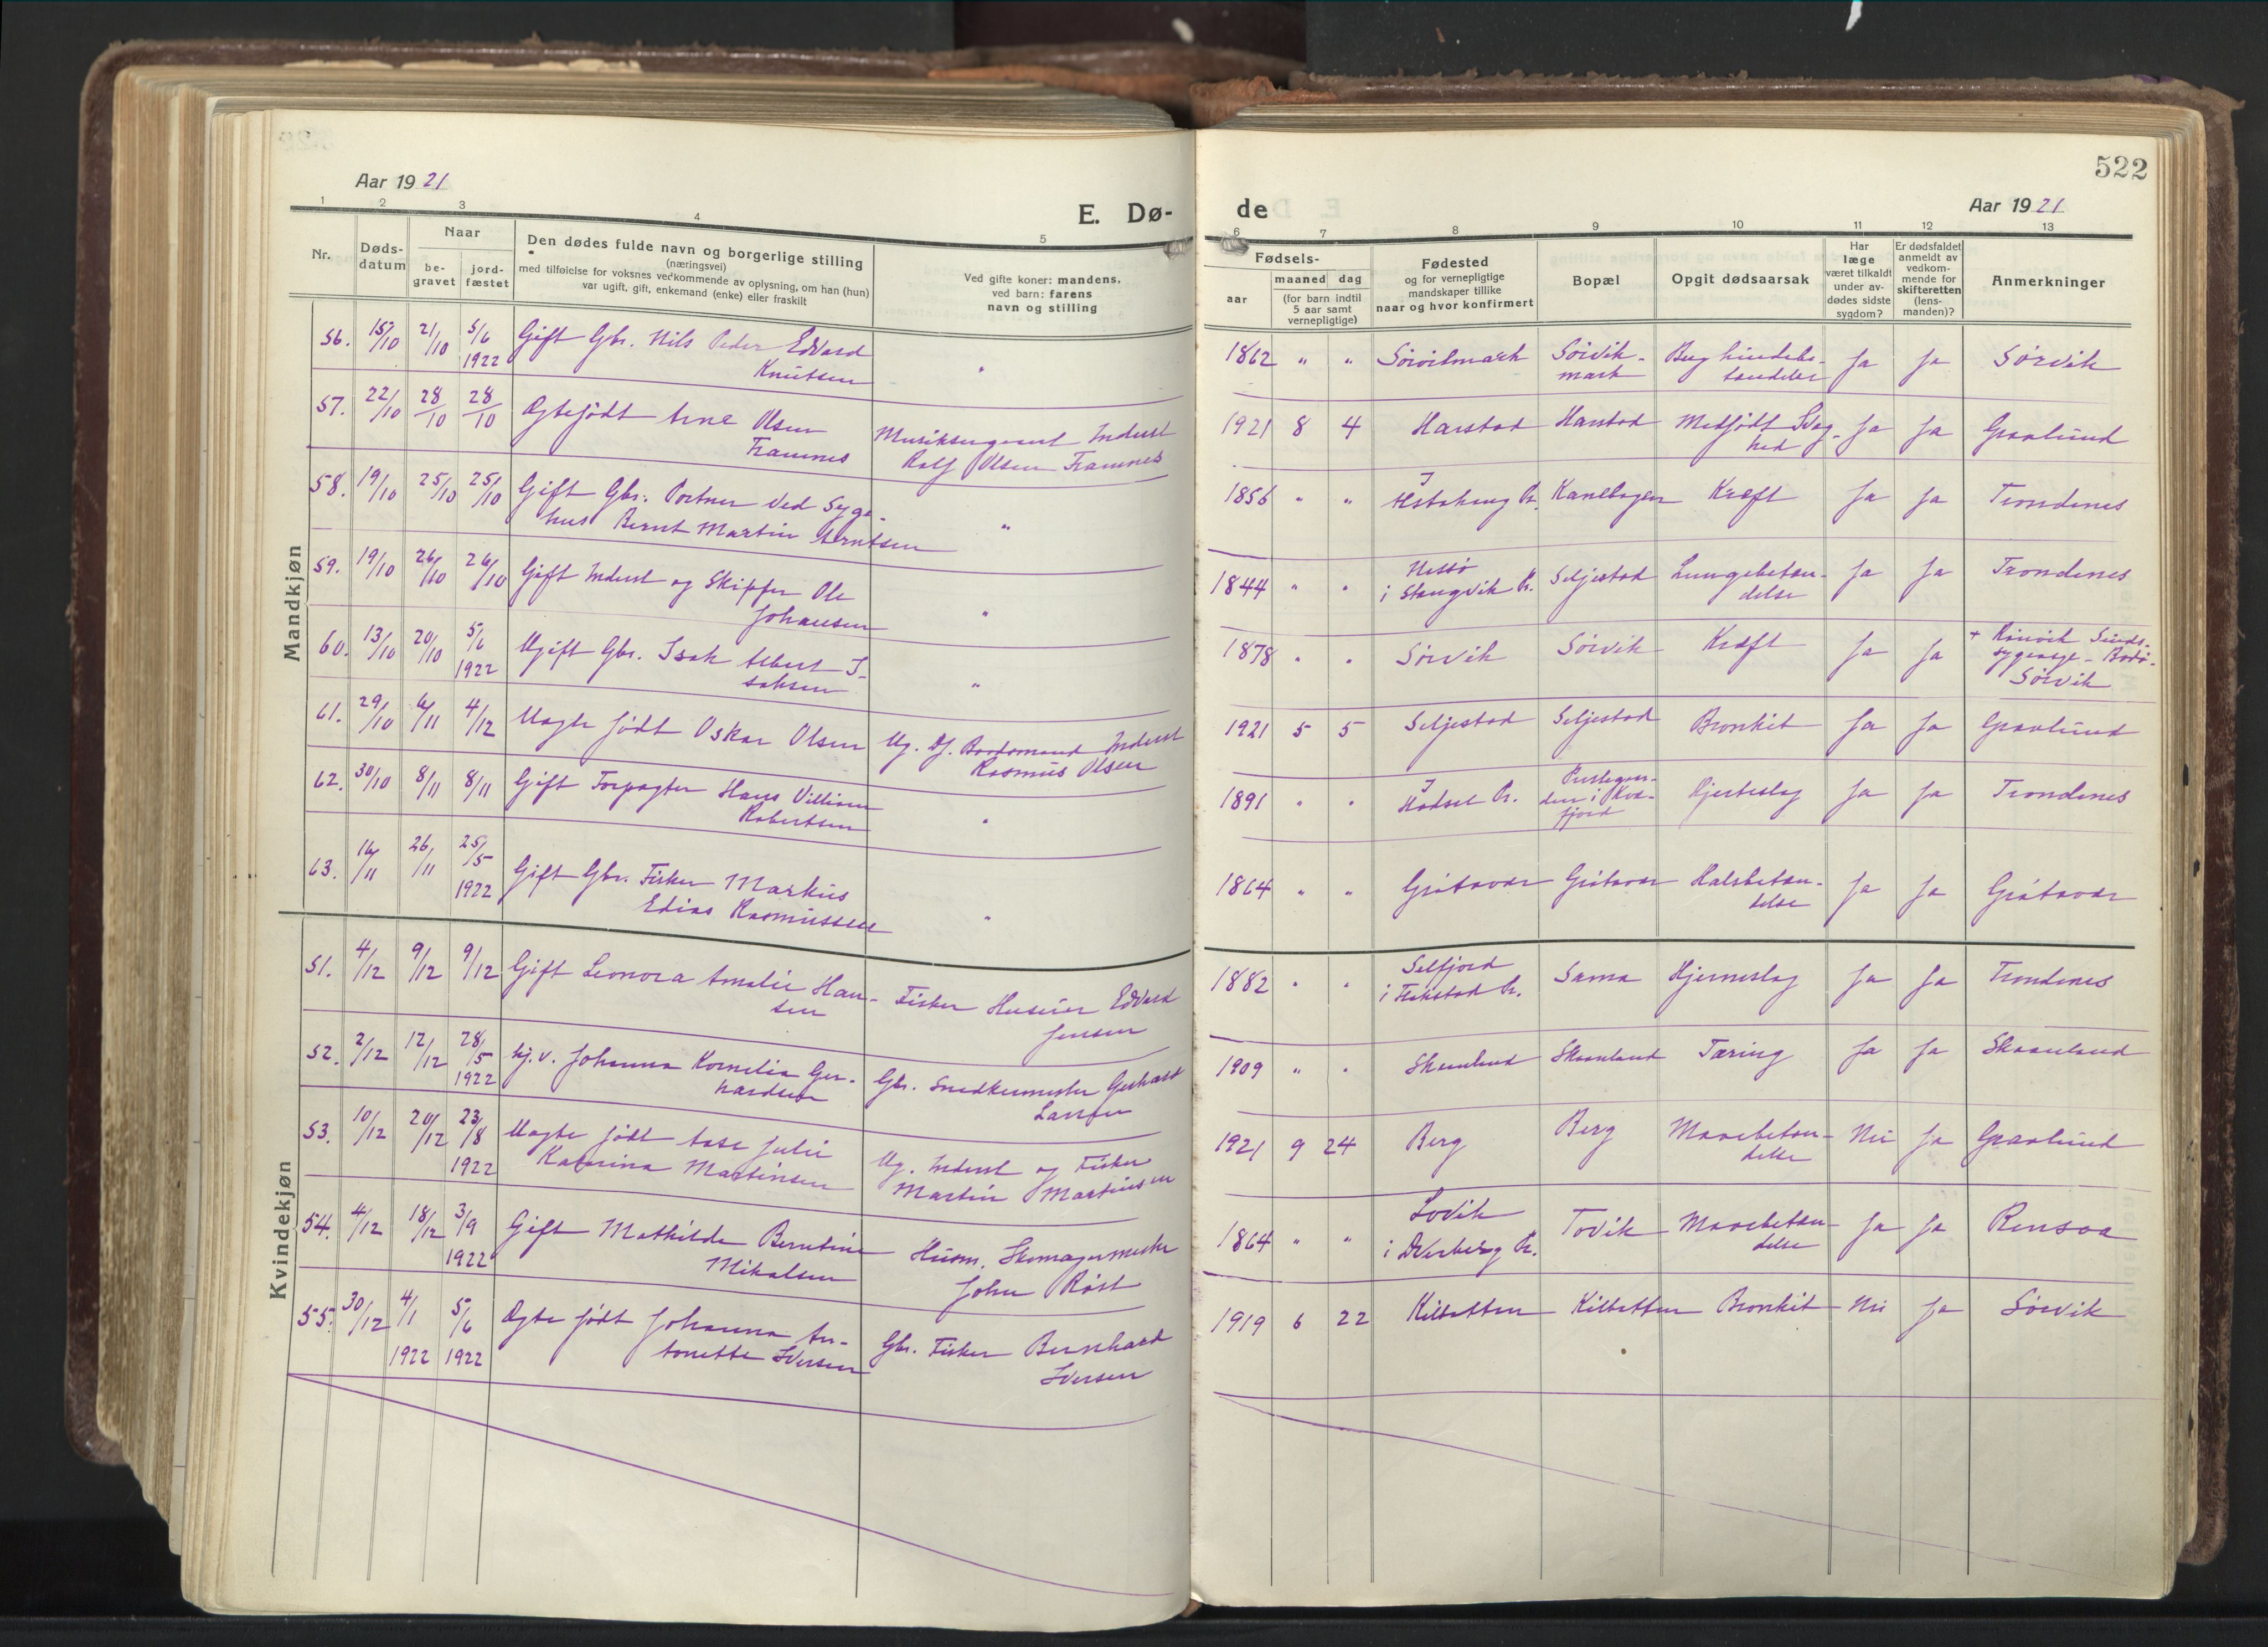 522
Aar 1921
E. Dø-
de
Aar 1921
1 2 3 4 5 6 7 8 9 10 11 12 13
Nr.
Døds-
datum
Naar
be-
gravet
jord-
fæstet
Den dødes fulde navn og borgerlige stilling
(næringsvei)
med tilføielse for voksnes vedkommende av oplysning, om han (hun)
var ugift, gift, enkemand (enke) eller fraskilt
Ved gifte koner: mandens,
ved barn: farens
navn og stilling
Fødsels-
aar
maaned dag
(for barn indtil
5 aar samt
vernepligtige)
Fødested
og for vernepligtige
mandskaper tillike
naar og hvor konfirmert
Bopæl
Opgit dødsaarsak
Har
læge
været tilkaldt
under av-
dødes sidste
sygdom?
Er dødsfaldet
anmeldt av
vedkom-
mende for
skifteretten
(lens-
manden)?
Anmerkninger
Mandkjøn
56. 15/10 21/10 5/6 1922 Gift Gbr. Nils Peder Edvard
Knutsen " 1862 " " Sørvikmark Sørvik-
mark Ja Ja Sørvik
57. 22/10 28/10 28/10 Ægtefødt Arne Olsen
Framnes Musiksergeant Inderst
Rolf Olsen Framnes 1921 8 4 Harstad Harstad Medfødt Svag-
hed Ja Ja Graalund
58. 19/10 25/10 25/10 Gift Gbr. Portner ved Syge-
hus Bernt Martin Arntsen " 1856 " " I
Alstahaug Pr. Kanebogen Kræft Ja Ja Trondenes
59. 19/10 26/10 26/10 Gift Inderst og Skipper Ole
Johansen " 1844 " "
i Stangvik Pr. Seljestad Lungebetæn-
delse Ja Ja Trondenes
60. 13/10 20/10 5/6 1922 Ugift Gbr. Isak Albert I-
saksen " 1878 " " Sørvik Sørvik Kræft Ja Ja + Rønvik Sinds-
sygeasyl - Bodø-
Sørvik
61. 29/10 6/11 4/12 Uægte født Oskar Olsen Ug. Baadsmand Inderst
Rasmus Olsen 1921 5 5 Seljestad Seljestad Bronkit Ja Ja Graalund
62. 30/10 8/11 8/11 Gift Forpagter Hans Villiam
Robertsen " 1891 " " I
Hadsel Pr. Prestegaar-
den i Kvæ-
fjord Hjerteslag Ja Ja Trondenes
63. 16/11 26/11 25/5 1922 Gift Gbr. Fisker Markus
Edias Rasmussen " 1864 " " Grøtavær Grøtavær Halsbetæn-
delse Ja Ja Grøtavær
Kvindekjøn
51. 4/12 9/12 9/12 Gift Leonora Amalie Han-
sen Fisker Huseier Edvard
Jensen 1882 " " Selfjord
i Flakstad Pr. Sama Hjerneslag Ja Ja Trondenes
52. 2/12 12/12 28/5 1922 hj.v. Johanna Kornelia Ger-
hardsen Gbr. Snedkermester Gerhard
Larsen 1909 " " Skaanland Skaanland Tæring Ja Ja Skaanland
53. 10/12 20/12 23/8 1922 Uægte født Aase Julie
Katrina Martinsen Ug. Inderst og Fisker
Martin Martinsen 1921 9 24 Berg Berg Mavebetæn-
delse Nei Ja Graalund
54. 4/12 18/12 3/9 1922 Gift Mathilde Berntine
Mikalsen Husm. Skomagermester
John Røst 1864 " " Lovik
i Dverberg Pr. Tovik Mavebetæn-
delse Ja Ja Rensaa
55. 30/12 4/1 1922 5/6 1922 Ægte født Johanna An-
tonette Iversen Gbr. Fisker Bernhard
Iversen 1919 6 22 Kilbotten Kilbotten Bronkit Nei Ja Sørvik